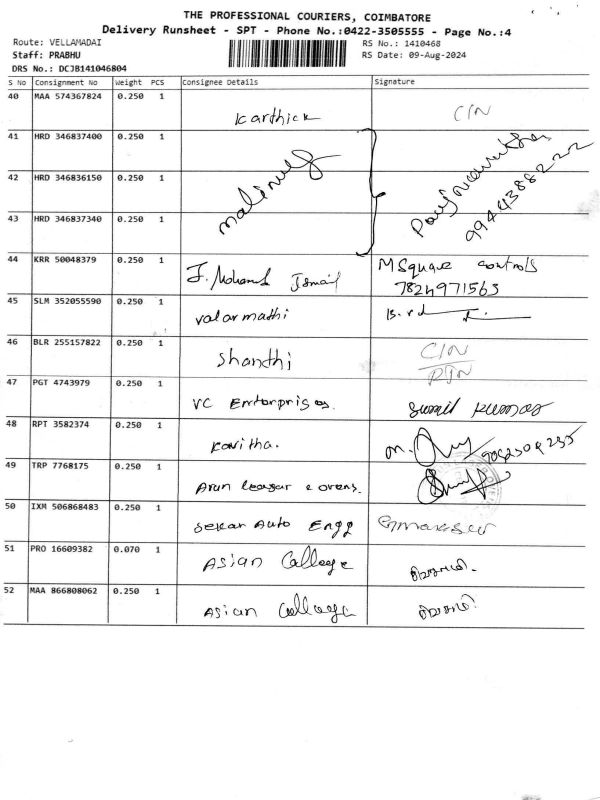 THE PROFESSIONAL COURIERS, COIMBATORE
Delivery Runsheet - SPT - Phone No.:0422-3505555 - Page No.:4
Route: VELLAMADAI RS No.: 1410468
Staff: PRABHU RS Date: 09-Aug-2024
DRS No.: DCJB141046804
S No Consignment No Weight PCS Consignee Details Signature
40 MAA 574367824 0.250 1 Karthick CIN
41 HRD 346837400 0.250 1
42 HRD 346836150 0.250 1 9944388222
43 HRD 346837340 0.250 1
44 KRR 50048379 0.250 1 J. Mohamed Ismail MSquare controls
7824971563
45 SLM 352055590 0.250 1 Valarmathi
46 BLR 255157822 0.250 1 Shanthi CIN
RTN
47 PGT 4743979 0.250 1 VC Enterprises Sunil Kumar
48 RPT 3582374 0.250 1 Kavitha.
49 TRP 7768175 0.250 1 Arun
50 IXM 506868483 0.250 1 Sekar Auto Engg
51 PRO 16609382 0.070 1 Asian College
52 MAA 866808062 0.250 1 Asian College